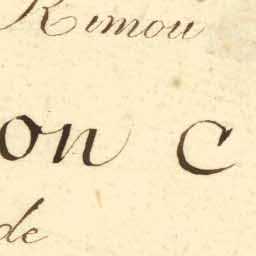 Rimou
on C
de